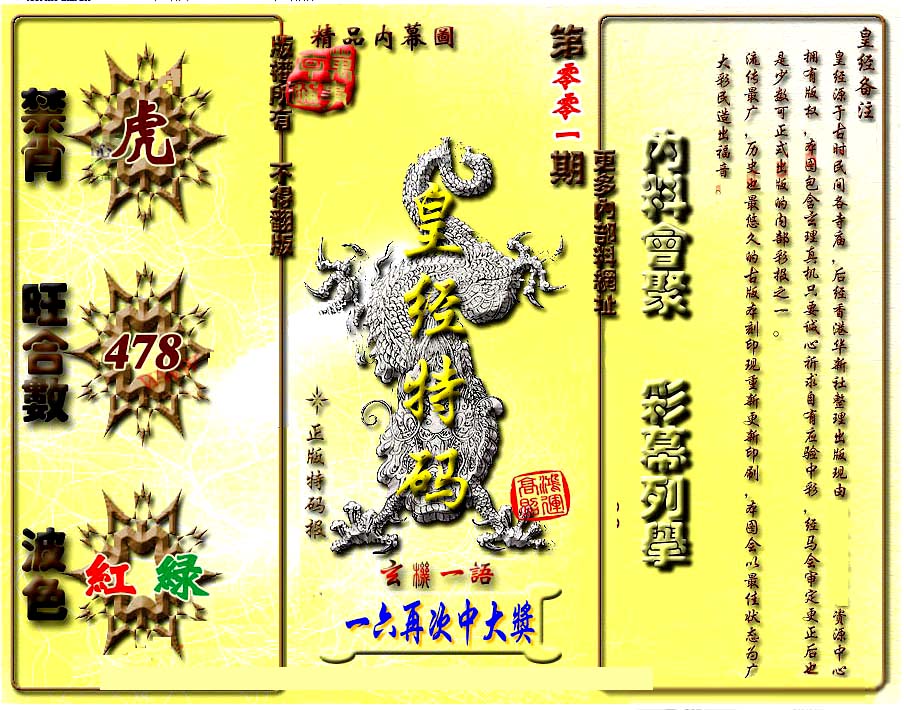 皇经备注
皇经源于古时民间各寺庙,后经香港华新社整理出版现由 资源中心
拥有版权,本图包含玄理真机只要诚心祈求自有应验中彩,经马会审定更正后也
是少数可正式出版的内部彩报之一。
流传最广,历史也最悠久的古版本刻印现重新更新印刷,本图会以最佳状态为广
大彩民造出福音
内料會聚 彩幕列舉
更多內部料網址
第零零一期
精品内幕圖
皇经特码
正版特码报
鸿運高照
玄機一語
一六再次中大獎
版權所有 不得翻版
禁肖
虎
旺合數
478
波色
紅 綠